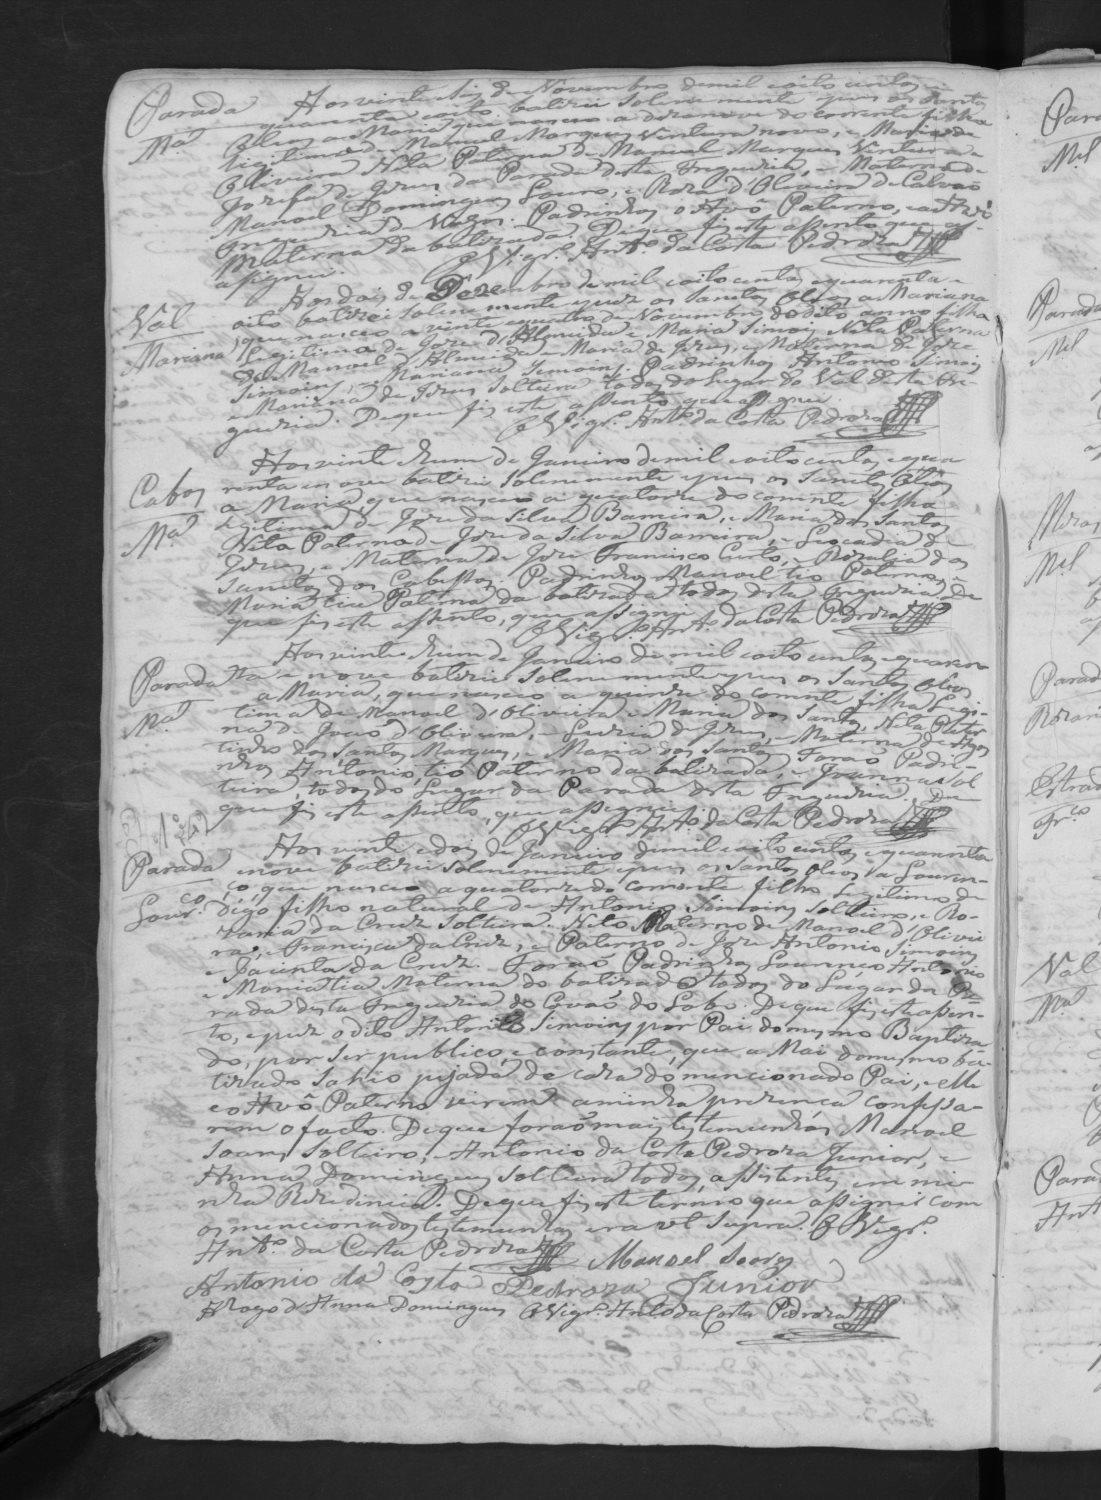 Parada
Mª
Aos vinte e seis de Novembro de mil e oito centos e
quarenta e oito batizei solenemente e puz os Santos
Oleos a Maria que nasceo a dezanove do corrente filha
legitima de Manoel Marques Ventura novo, e Maria de
Oliveira Neta Paterna de Manoel Marques Ventura e
Josefa de Jezus da Parada desta Freguezia, e Materna de
Manoel Domingues Louro, e Roza d'Oliveira de Calvão
Freguezia de Vagos. Padrinhos o Avô Paterno, e a Avó
Materna da batizada. De que fiz este assento que as-
signei. O Vigrº. Antº. da Costa Pedroza
Val
Mariana
Aos dois de Dezembro de mil e oito centos e quarenta e
oito batizei solenemente e puz os Santos Oleos a Mariana
que nasceo a vinte e quatro de Novembro do dito anno filha
legitima de Joze d'Almeida e Maria Simois Neta Paterna
de Manoel d'Almeida e Maria de Jezus, e Materna de Joze
Simois, e Mariana Simois. Padrinhos Antonio Simois
e Mariana de Jezus solteira todos do Lugar do Val desta Fre-
guezia. De que fiz este assento que assignei.
O Vigrº. Antº. da Costa Pedroza
Cabeços
Mª
Aos vinte e hum de Janeiro de mil e oito centos e qua
renta e nove batizei solenemente e puz os Santos Oleos
a Maria, que nasceo a quatorze do corrente filha
legitima de Joze da Silva Bamira, e Maria dos Santos
Neta Paterna de Joze da Silva Bamira, e Leocadia de
Jezus, e Materna de Joze Francisco Curto, e Rozalia dos
Santos dos Cabessos. Padrinhos Manoel tio Paterno, e
Maria tia Paterna da batizada todos desta Freguezia. De
que fiz este assento, que assignei.
O Vigrº. Antº. da Costa Pedroza
Parada
Mª
Aos vinte e hum de Janeiro de mil e oito centos e quaren
ta e nove batizei solenemente e puz os Santos Oleos
a Maria, que nasceo a quinze do corrente filha legi-
tima de Manoel d'Oliveira e Maria dos Santos, Neta Pater
na de João d'Oliveira, e Luzia de Jezus, e Materna de Agos
tinho dos Santos Marques, e Maria dos Santos. Forão Padri-
nhos Antonio tio Paterno da batizada, e Joanna Sol
teira, todos do Lugar da Parada desta Freguezia. De
que fiz este assento, que assignei.
O Vigrº. Antº. da Costa Pedroza
Parada
Lourço.
Aos vinte e dois de Janeiro de mil e oito centos e quarenta
e nove batizei solenemente e puz os Santos Oleos a Louren-
ço que nasceo a quatorze do corrente filho legitimo de
digo filho natural de Antonio Simois solteiro, e Ro-
zaria da Cruz solteira. Neto Materno de Manoel d'Olivei
ra, e Francisca da Cruz, e Paterno de Joze Antonio Simois
e Jacinta da Cruz. Forão Padrinhos Lourenco Antonio
e Maria tia Materna do batizado todos do Lugar da Pa-
rada desta Freguezia do Covão do Lobo. De que fiz este assen-
to, e puz o dito Antonio Simois por Pai do mesmo Baptiza
do, por ser publico, e constante, que a Mai do mesmo ba-
tizado sahio pejada de caza do mencionado Pai, e elle
e o Avô Paterno virem a minha prezença confessa-
rem o facto. De que forão mais testemunhas Manoel
Soares Solteiro, e Antonio da Costa Pedroza Junior, e
Anna Domingues solteira todos, assistentes em mi-
nha Rezidencia. De que fiz este termo que assignei com
os mencionados testemunhas era ut supra. O Vigrº.
Antº. da Costa Pedroza Manoel Soares
Antonio da Costa Pedroza Junior
A rogo d'Anna Domingues O Vigrº. Antº da Costa Pedroza
Mel
Parada
Mel
Mel
Val
Mª